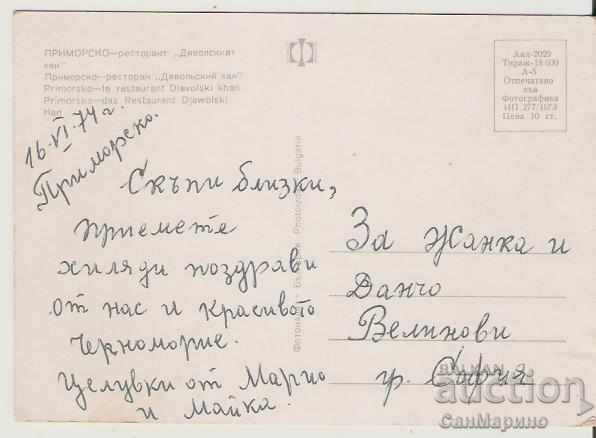 ПРИМОРСКО—ресторант „Дяволският
хан"
Приморско—ресторан „Дявольский хан"
Primorsko—le restaurant Diavolski khan
Primorsko—das Restaurant Djawolski
Han
Акл-2029
Тираж-18 000
А-5
Отпечатано
във
Фотографика
ИП 277/1973
Цена 10 ст.
Фотоиздат • България Photoizdat • Bulgaria
16.VI.74 г.
Приморско.
Скъпи близки,
приемете
хиляди поздрави
от нас и красивото
Черноморие.
Целувки от Марио
и Майка.
За Жанка и
Данчо
Велинови
гр. София
BALKAN
auction
СанМарино